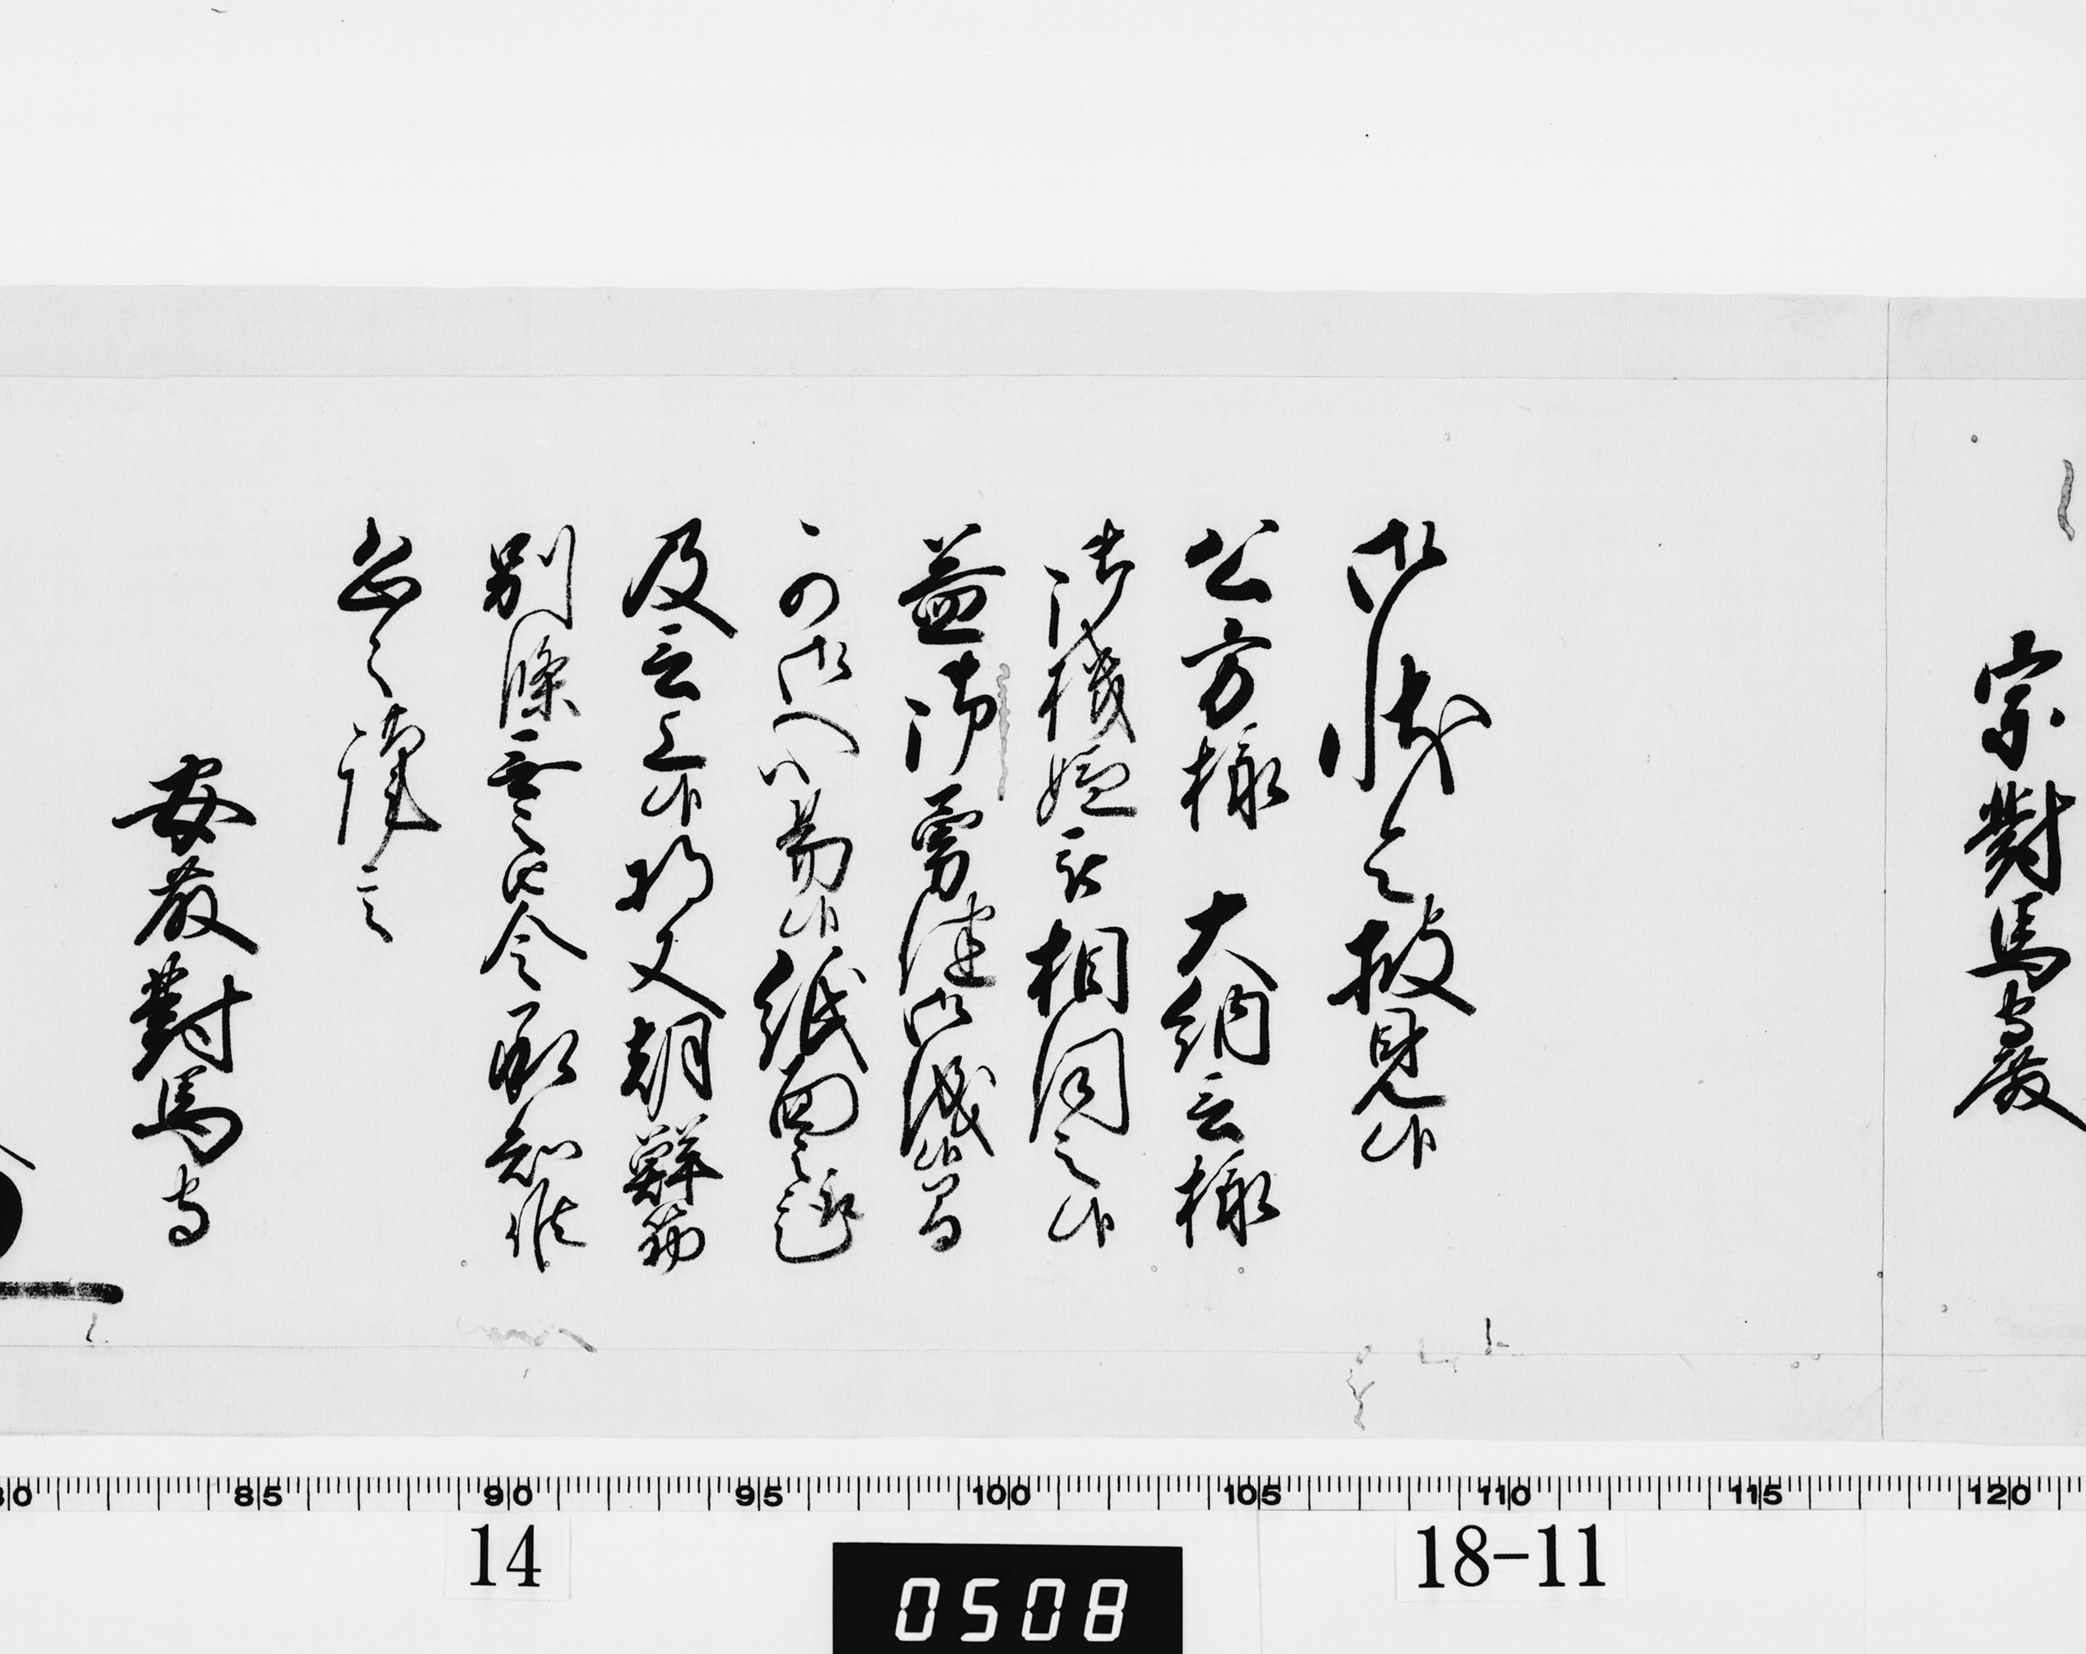 宗對馬守殿
御状令披見候
公方様 大納言様
御機嫌被相伺之候
益御勇健御儀候間
可御心易候紙面之趣
及言上候将又朝鮮筋
別條無之旨令承知候
恐々謹言
安藤對馬守
14
18-11
0508
80 85 90 95 100 105 110 115 120